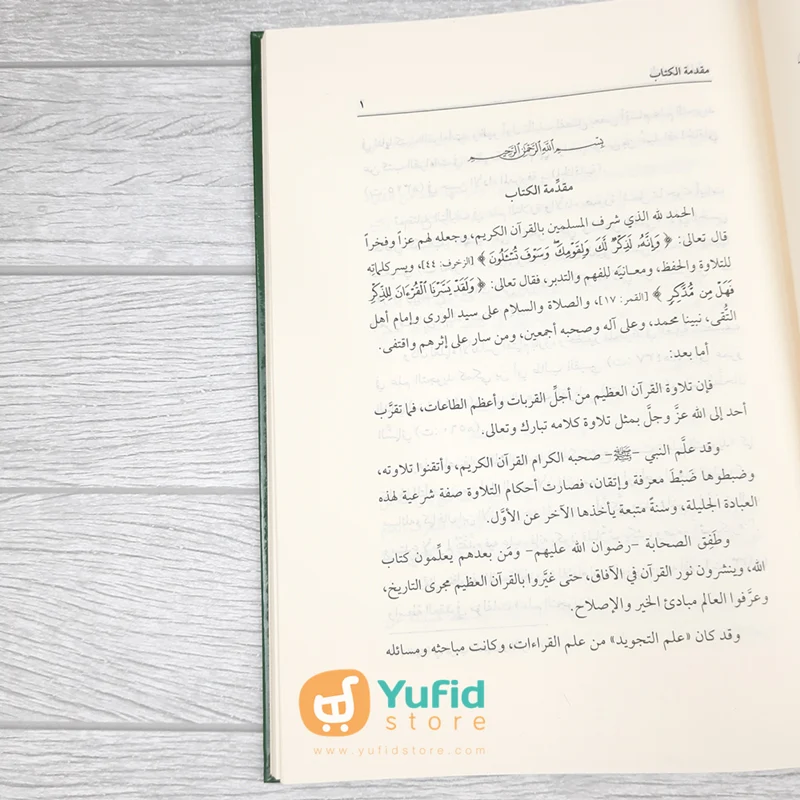 مقدمة الكتاب
١
بسم الله الرحمن الرحيم
مقدِّمة الكتاب
الحمد لله الذي شرف المسلمين بالقرآن الكريم، وجعله لهم عزاً وفخراً
قال تعالى: ﴿ وَإِنَّهُۥ لَذِكْرٌ لَّكَ وَلِقَوْمِكَ وَسَوْفَ تُسْـَٔلُونَ ﴾ [الزخرف: ٤٤]، ويسر كلماتِه
للتلاوة والحفظ، ومعانيَه للفهم والتدبر، فقال تعالى: ﴿ وَلَقَدْ يَسَّرْنَا ٱلْقُرْءَانَ لِلذِّكْرِ
فَهَلْ مِن مُّدَّكِرٍ ﴾ [القمر: ١٧]، والصلاة والسلام على سيد الورى وإمام أهل
التُّقى، نبينا محمد، وعلى آله وصحبه أجمعين، ومن سار على إثرهم واقتفى.
أما بعد:
فإن تلاوة القرآن العظيم من أجلِّ القربات وأعظم الطاعات، فما تقرَّب
أحد إلى الله عزَّ وجلَّ بمثل تلاوة كلامه تبارك وتعالى.
وقد علَّم النبي -ﷺ- صحبه الكرام القرآن الكريم، وأتقنوا تلاوته،
وضبطوها ضَبْطَ معرفة وإتقان، فصارت أحكام التلاوة صفة شرعية لهذه
العبادة الجليلة، وسنةً متبعة يأخذها الآخر عن الأوَّل.
وطَفِق الصحابة -رضوان الله عليهم- ومَن بعدهم يعلِّمون كتاب
الله، وينشرون نور القرآن في الآفاق، حتى غيَّروا بالقرآن العظيم مجرى التاريخ،
وعرَّفوا العالم مبادئ الخير والإصلاح.
وقد كان «علم التجويد» من علم القراءات، وكانت مباحثه ومسائله
Yufid
store
www.yufidstore.com